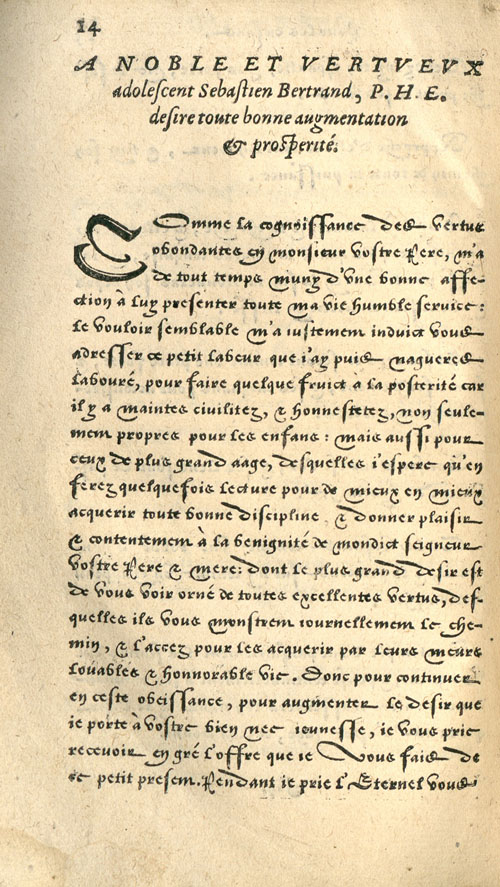 14
A NOBLE ET VERTVEVX
adolescent Sebastien Bertrand, P. H. E.
desire toute bonne augmentation
& prosperité.
Comme la cognoissance des vertus
abondantes en monsieur vostre Pere, m'a
de tout temps muny d'vne bonne affe-
ction à luy presenter toute ma vie humble service:
le vouloir semblable m'a iustement induict vous
adresser ce petit labeur que i'ay puis nagueres
labouré, pour faire quelque fruict à la posterité car
il y a maintes civilitez, & honnestetez, non seule-
ment propres pour les enfans: mais aussi pour
ceux de plus grand aage, desquelles i'espere qu'en
ferez quelquefois lecture pour de mieux en mieux
acquerir toute bonne discipline, & donner plaisir
& contentement à la benignité de mondict seigneur
vostre Pere & mere: dont le plus grand desir est
de vous voir orné de toutes excellentes vertus, des-
quelles ils vous monstrent iournellement le che-
min, & l'accez pour les acquerir par leurs meurs
louables & honnorable vie. Donc pour continuer
en ceste obeissance, pour augmenter le desir que
ie porte à vostre bien nee ieunesse, ie vous prie
recevoir en gré l'offre que ie Vous fais de
ce petit present. Pendant ie prie l'Eternel vous